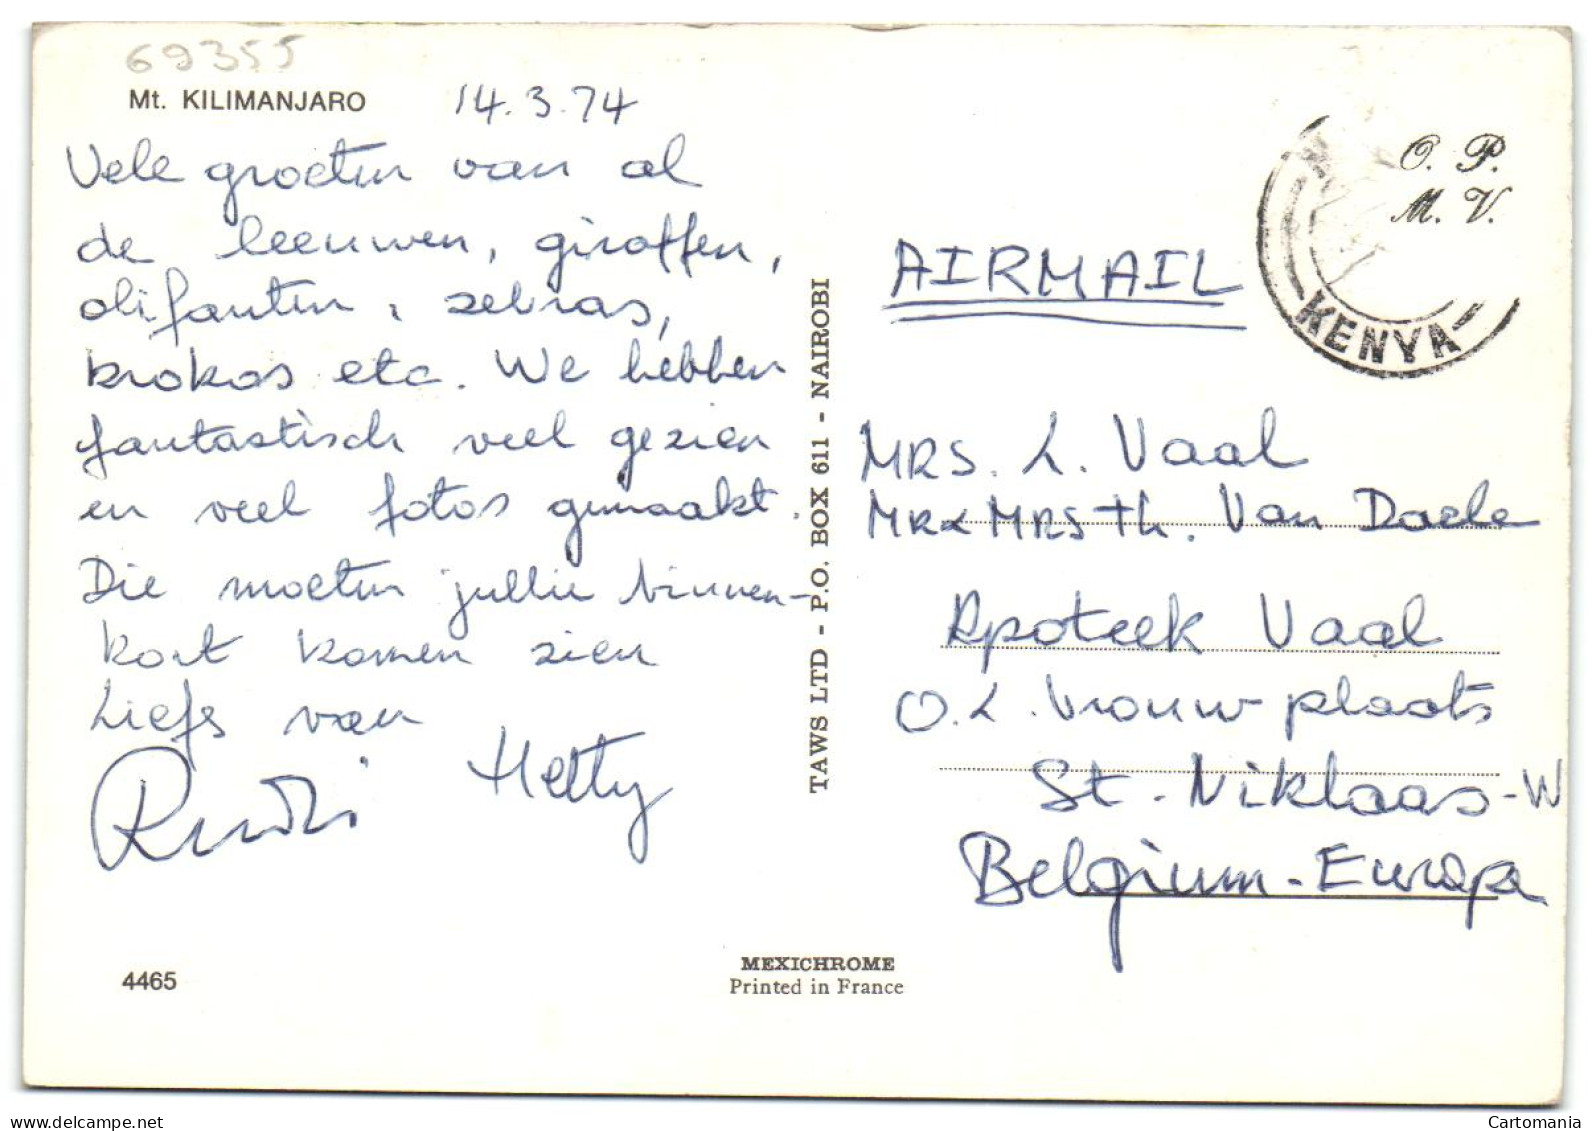 69355
Mt. KILIMANJARO
14.3.74
Vele groeten van al
de leeuwen, giraffen,
olifanten, zebras,
krokos etc. We hebben
fantastisch veel gezien
en veel fotos gemaakt.
Die moeten jullie binnen-
kort komen zien
Liefs van
Rudi Hetty
4465
TAWS LTD - P.O. BOX 611 - NAIROBI
MEXICHROME
Printed in France
O. P.
M. V.
KENYA
AIRMAIL
MRS. L. Vaal
MR & MRS th. Van Daele
Apoteek Vaal
O.L. Vrouw plaats
St. Niklaas-W
Belgium-Europa
Cartomania